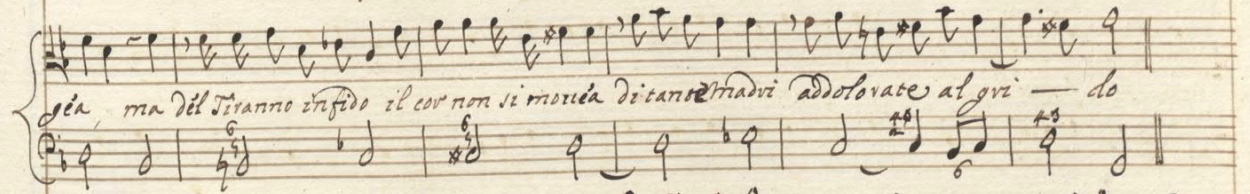 géa, ma dél Tiranno infido il cor non si mouéa di tante Madri addolorate al gri — do